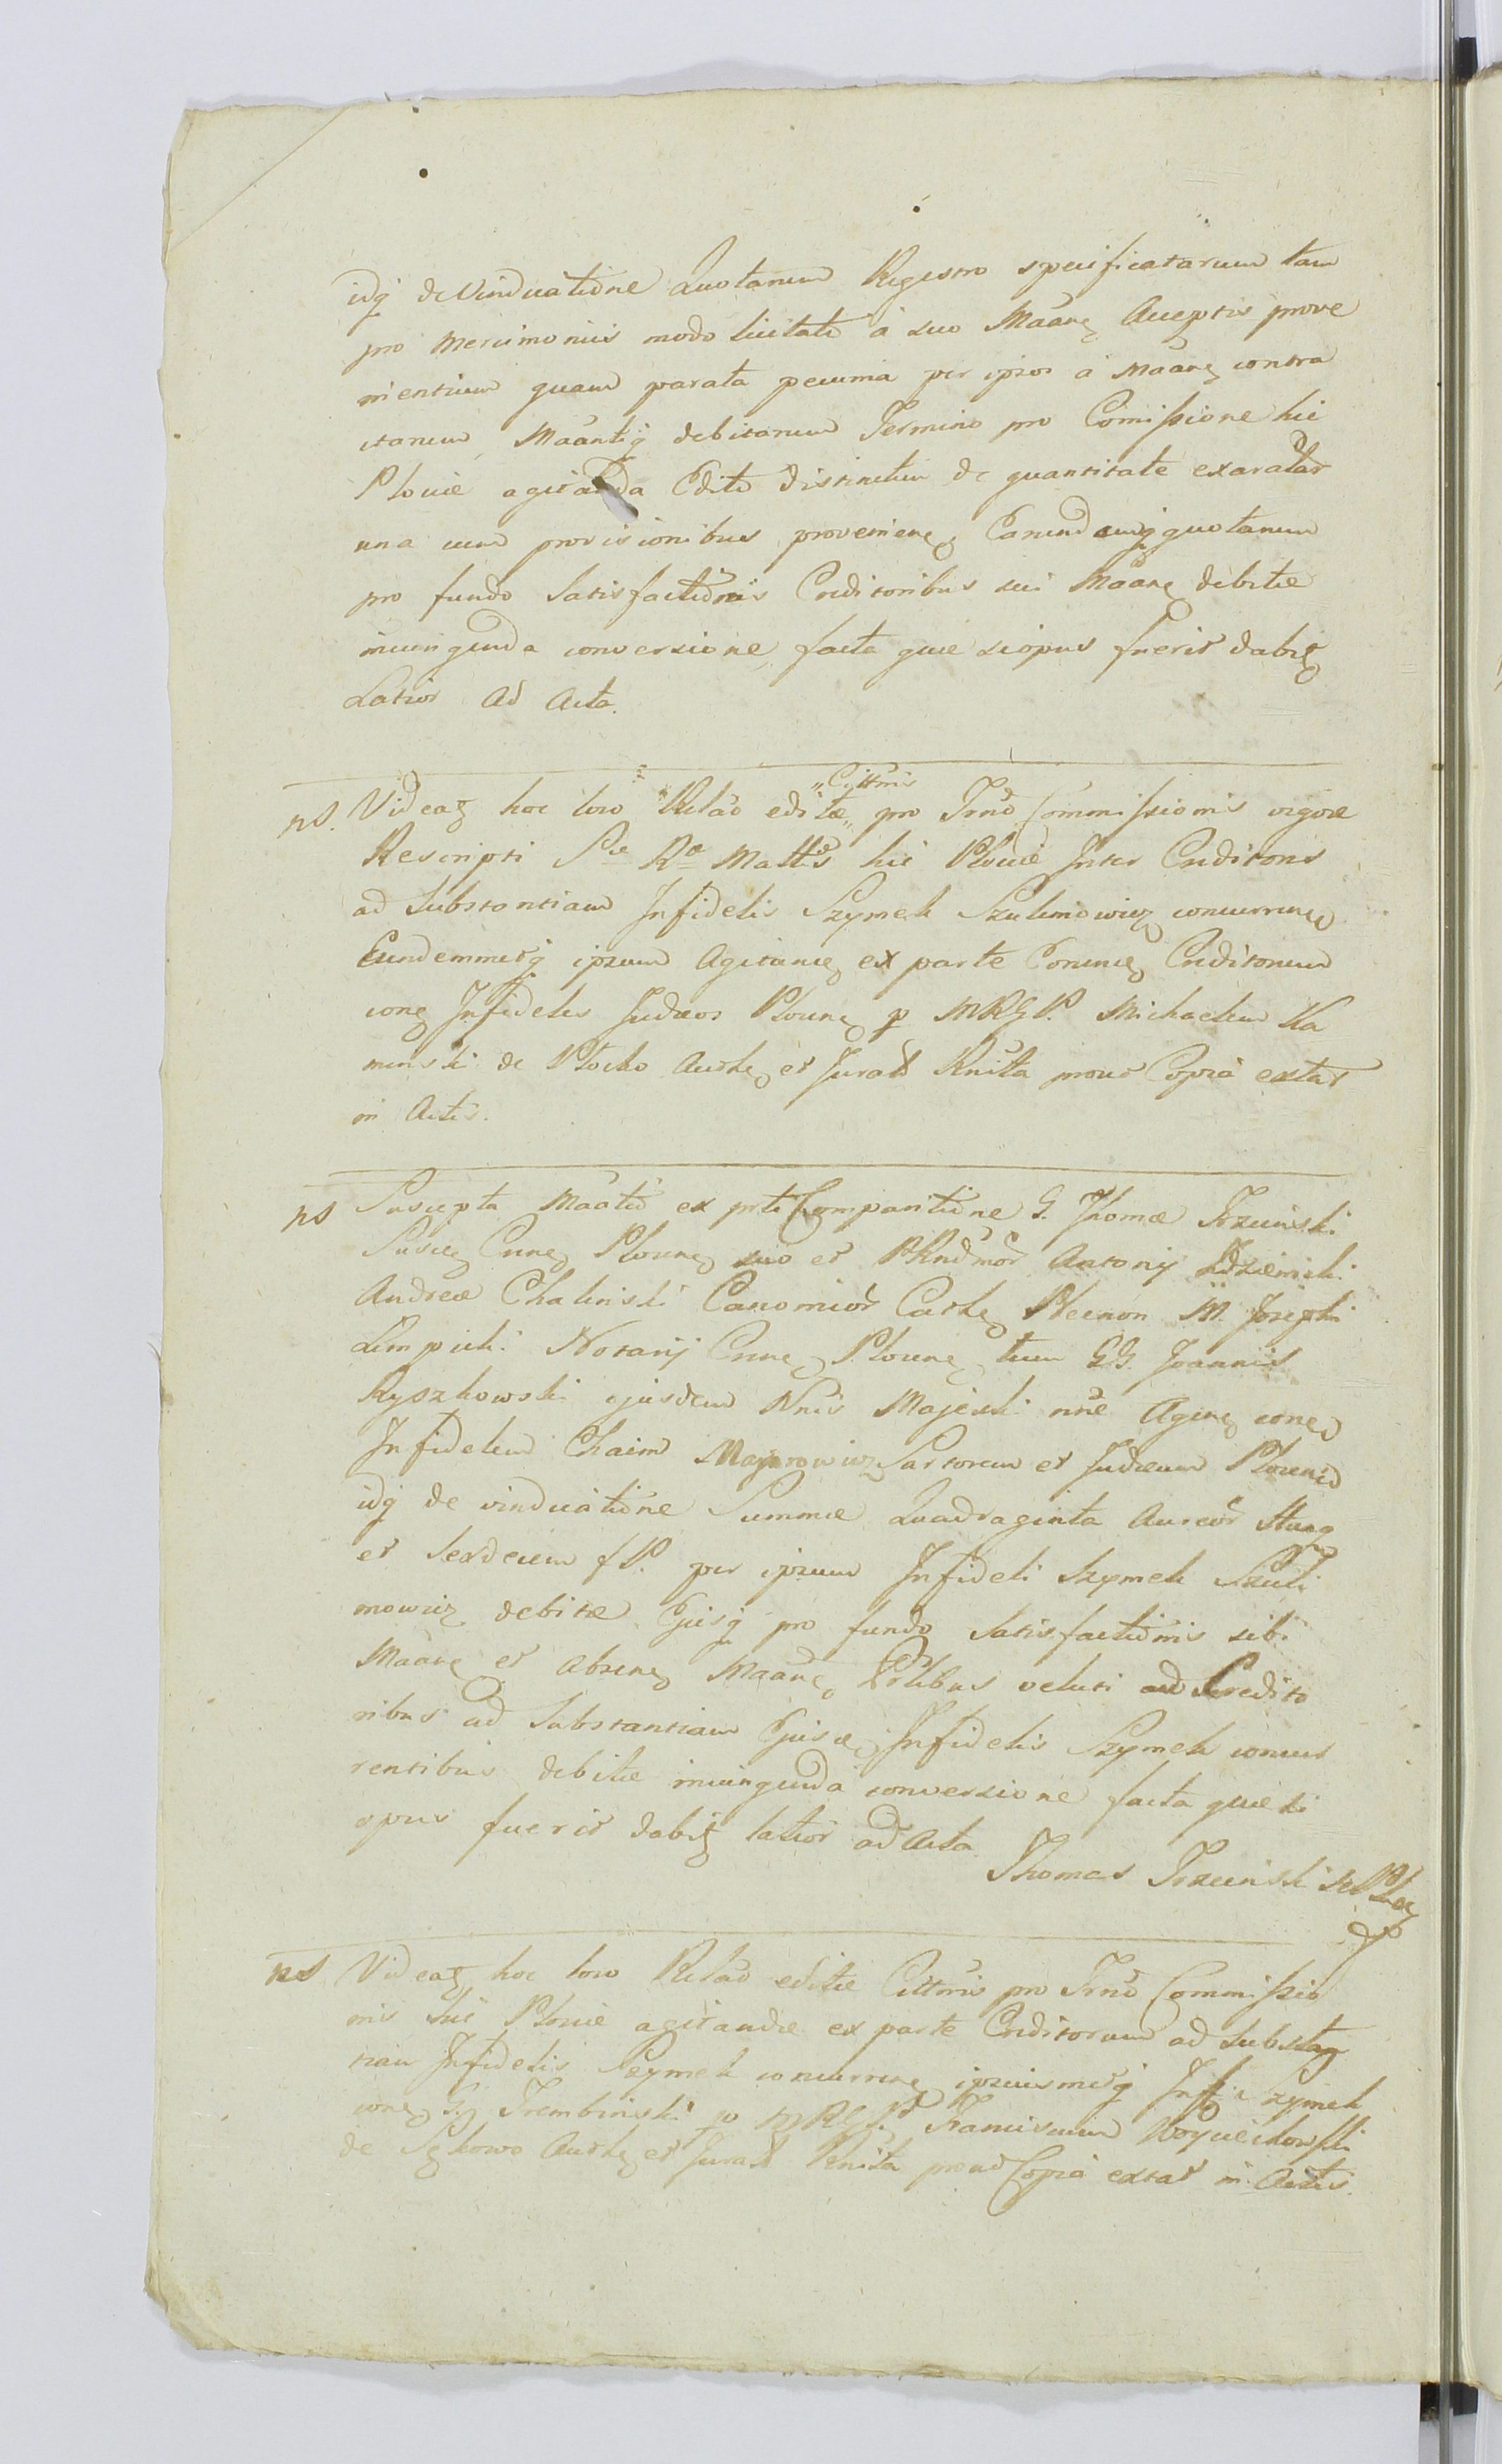 idq de Vindicatione Quotarum Regestro specificatarum tam
pro mercimoniis modo licitato à suo Maane Acceptis prove
nientium quam parata pecunia per ipsos à Maane contra
ctarum, Maantiq debitarum Termino pro Comissione hic
Plociæ agitanda Edito distinctim de quantitate exaratar
una cum provisionibus provenien, Earundemq quotarum
pro fundo Satisfactionis Creditoribus sui Maane debitæ
iniungenda conversione, facta quæ siopus fuerit dabit
Latior Ad Acta.
nS. Videat hoc loco Relao editæ „Cittnis pro Trno Commissionis vigore
Rescripti Sæ Ræ Mattis hic Plociæ Inter Creditores
ad Substantiam Infidelis Szymek Szulimowicz concurren
Eundemmetq ipsum Agitan ex parte Eorunde Creditorum
con Infideles Judæos Plocen p MRGP. Michaelem Ka
minski de Płocko Authe et Jurat Rnita prout Copia extat
in Actis.
nS Suscepta Maatio ex prte Comparitione G. Thomæ Trzcinski
Suscep Crnen Plocen suo et PRndmor Antonij
Andreæ Chalinski Canonicor Cathe Plecnon M. Josephi
Lempicki Notarij Crnen Plocen tum GG. Joannis
Ryszkowski ejusdem Nnis Majeski nne Agen con
Infidelem Chaim Majorowicz Sartorem et Judæum Plocen
idq de vindicatione Summæ Quadraginta Aureor Hung
et Sexdecim fP. per ipsum Infideli Szymek Szuli
mowicz debitæ Ejusq pro fundo Satisfactionis sibi
Maane et absen Maane Prlibus veluti Credito
ribus ad Substantiam Ejusd Infidelis Szymek concur
rentibus debitæ iniungenda conversione facta quæ si
opus fuerit dabit latior ad Acta.
Thomas Trzcinski
ns Videat hoc loco Relao editæ Cittnis pro Trno Commissio
nis hic Plociæ agitandæ ex parte Creditorum ad Substan
tiam Infidelis Szymek concurren ipsiusmetq Infi Szymek
con G. Trembinski p MRGP. Franciscum Woyciechowski
de Sękowo Authe et Jurat Rnita prout Copia extat in Actis.